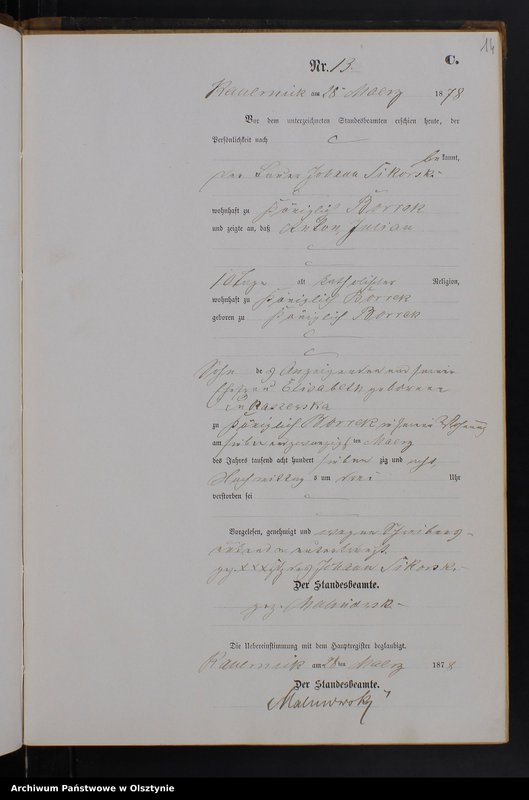 14
C.
Nr. 13.
Kauernik am 28 Maerz 1878
Vor dem unterzeichneten Standesbeamten erschien heute, der
Persönlichkeit nach
bekannt,
der Johann Sikorski
wohnhaft zu Königlich Borrek
und zeigte an, daß Anton, Julian
10 Tage alt katholischer Religion,
wohnhaft zu Königlich Borrek
geboren zu Königlich Borrek
Sohn des Anzeigenden und seiner
Ehefrau Elisabeth geborene
zu Königlich Borrek in seiner Wohnung
am sieben und zwanzigsten Maerz
des Jahres tausend acht hundert siebenzig und acht,
Nachmittags um drei Uhr
verstorben sei
Vorgelesen, genehmigt und wegen Schreibens-
unterkreuzt.
gez. XXX Johann Sikorski
Der Standesbeamte.
gez.
Die Uebereinstimmung mit dem Hauptregister beglaubigt.
Kauernik am 28ten Maerz 1878
Der Standesbeamte.
Archiwum Państwowe w Olsztynie